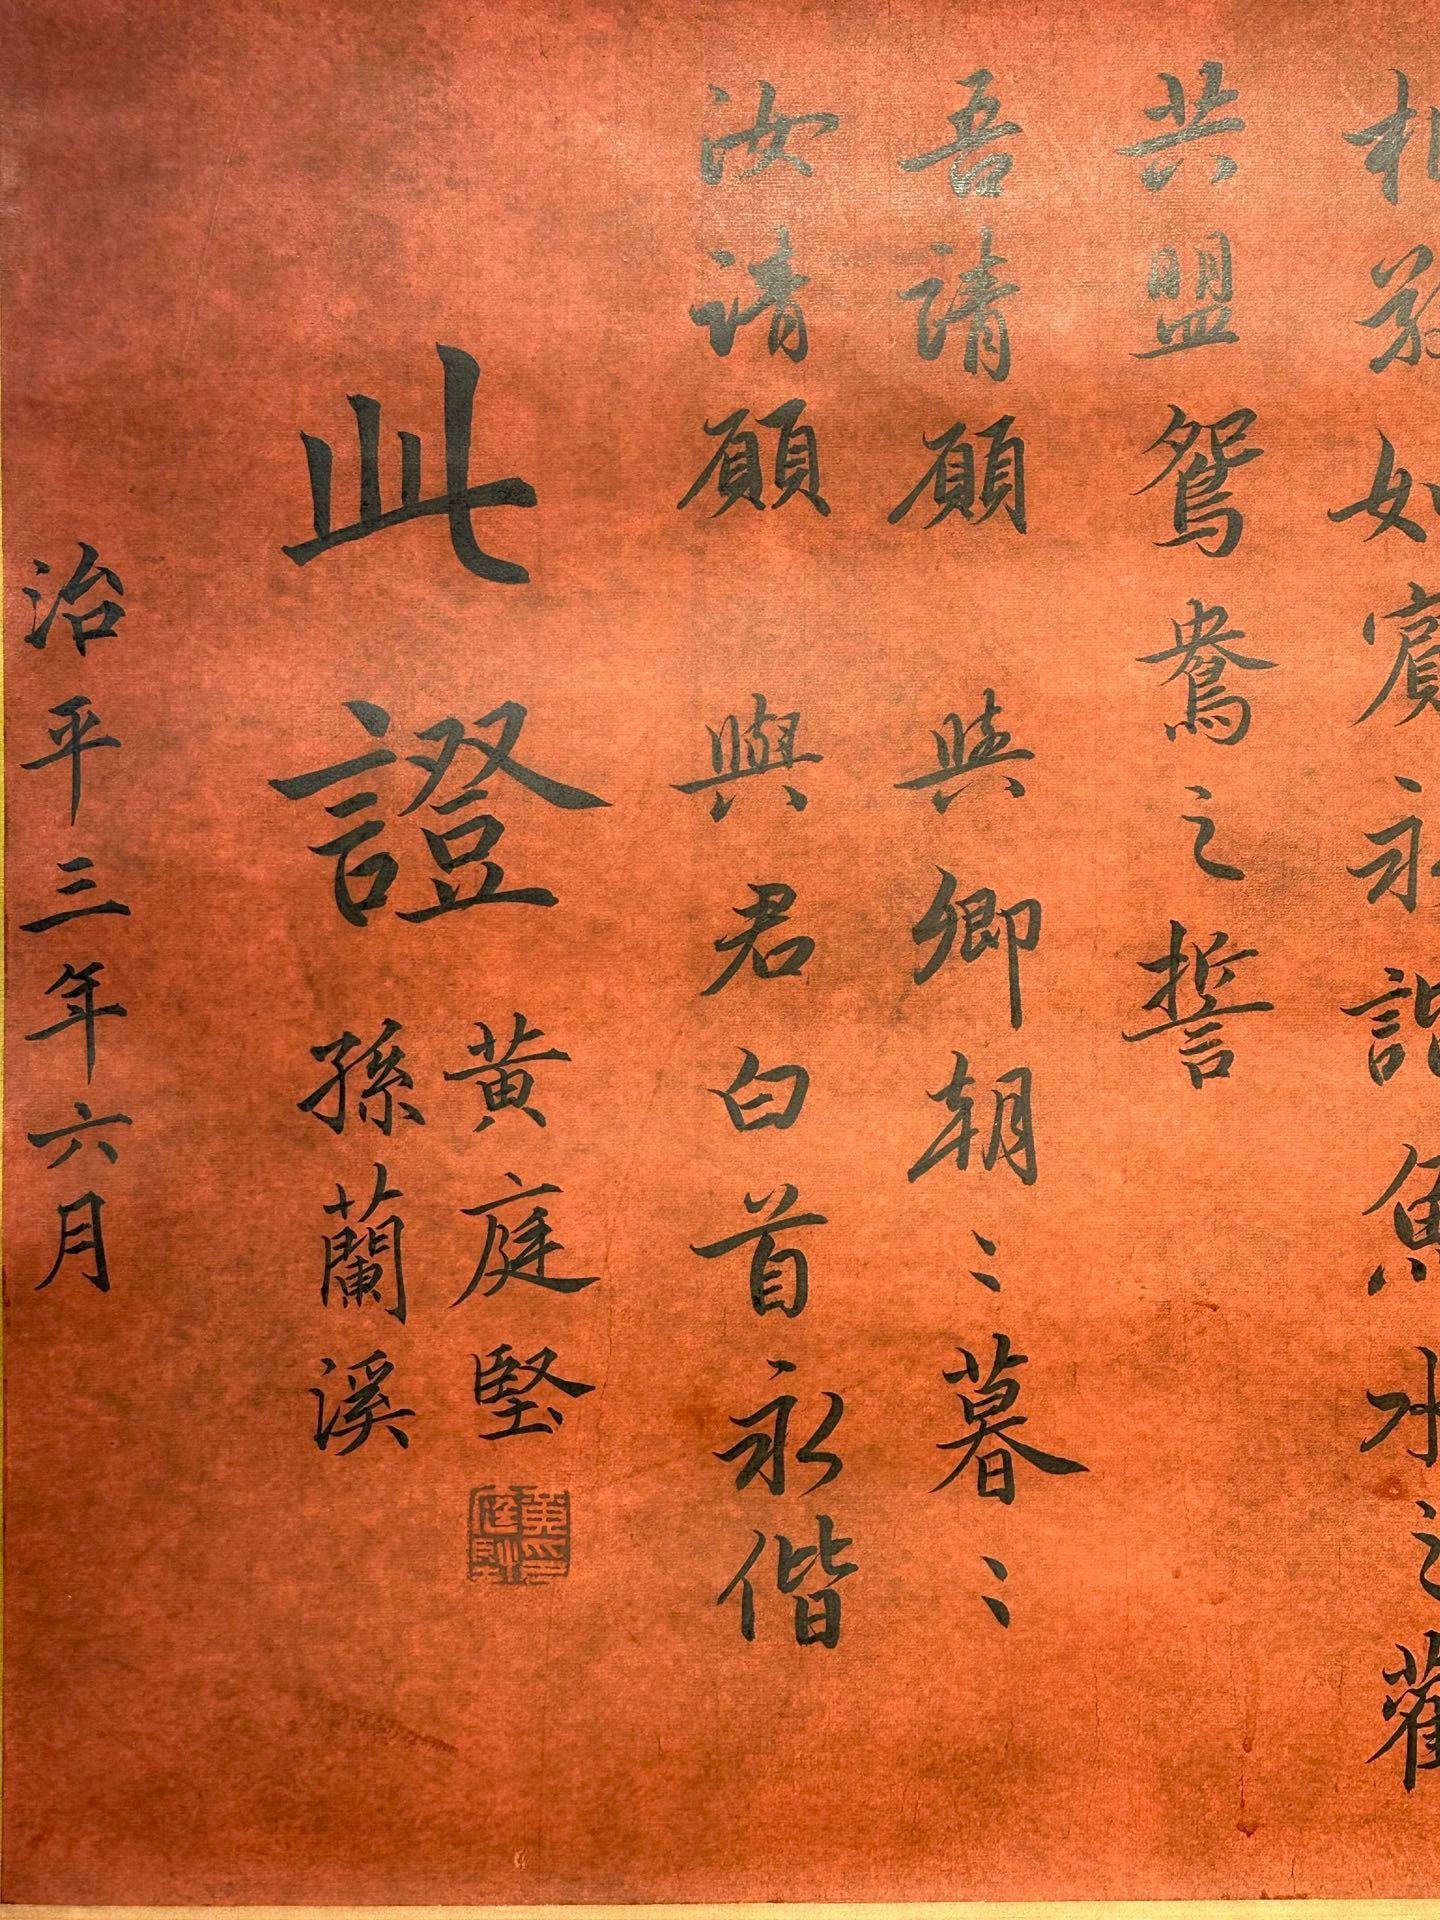 相敬如賓永諧魚水之歡
共盟鴛鴦之誓
吾請願 與卿朝〻暮〻
汝請願 與君白首永偕
此證
黃庭堅
孫蘭溪
治平三年六月